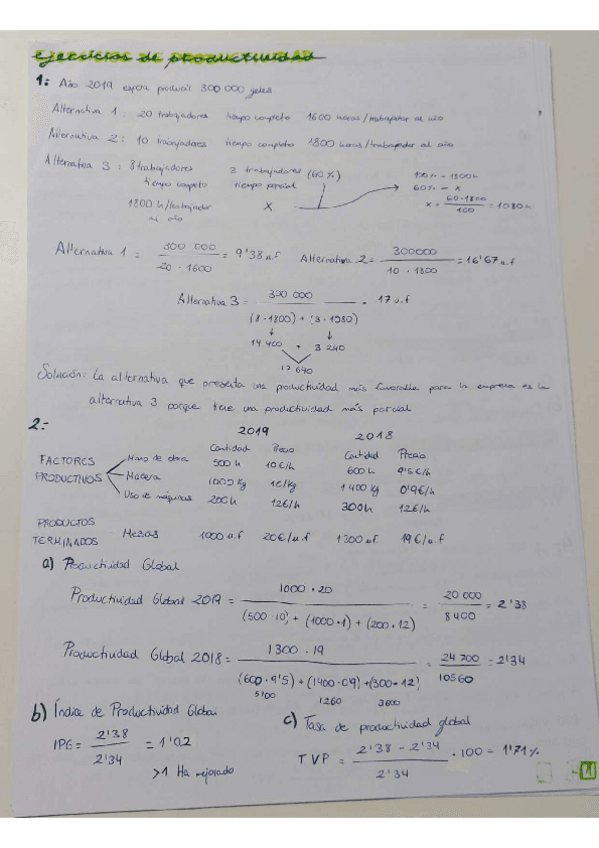 ejercicios de productividad
1: Año 2019 espera producir 300 000 geles
Alternativa 1: 20 trabajadores tiempo completo 1600 horas/trabajador al año
Alternativa 2: 10 trabajadores tiempo completo 1800 horas/trabajador al año
Alternativa 3: 8 trabajadores 3 trabajadores (60%) 100% - 1800h
tiempo completo tiempo parcial 60% - x
1800 h/trabajador al año x x = 60·1800 / 100 = 1080h
Alternativa 1 = 300 000 / 20 · 1600 = 9'38 u.f Alternativa 2 = 300000 / 10 · 1800 = 16'67 u.f
Alternativa 3 = 300 000 / (8·1800) + (3·1080) = 17 u.f
14 400 + 3 240
17 640
Solución: La alternativa que presenta una productividad más favorable para la empresa es la
alternativa 3 porque tiene una productividad más parcial
2: 2019 2018
Cantidad Precio Cantidad Precio
FACTORES PRODUCTIVOS
Mano de obra 500 h 10€/h 600 h 9'5€/h
Madera 1000 kg 1€/kg 1400 kg 0'9€/h
Uso de máquinas 200h 12€/h 300h 12€/h
PRODUCTOS
TERMINADOS Mesas 1000 u.f 20€/u.f 1300 u.f 19€/u.f
a) Productividad Global
Productividad Global 2019 = 1000 · 20 / (500·10) + (1000·1) + (200·12) = 20 000 / 8400 = 2'38
Productividad Global 2018 = 1300 · 19 / (600·9'5) + (1400·0'9) + (300·12) = 24 700 / 10560 = 2'34
5700 1260 3600
b) Índice de Productividad Global
IPG = 2'38 / 2'34 = 1'02
>1 Ha mejorado
c) Tasa de productividad global
TVP = 2'38 - 2'34 / 2'34 · 100 = 1'71%